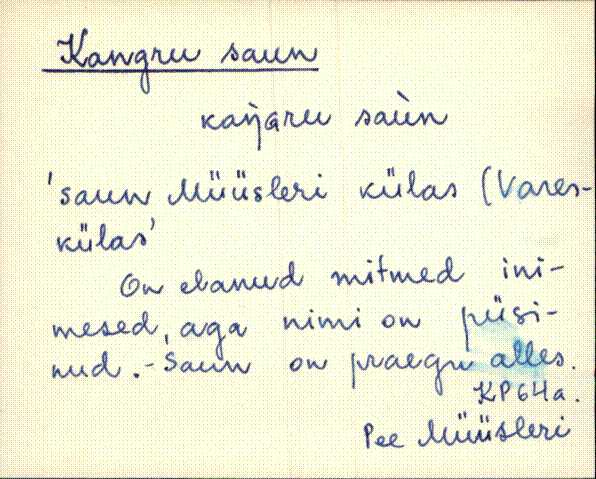 Kangru saun
kaŋgru saùn
'saun Müüsleri külas (Vares-
külas'
On elanud mitmed ini-
mesed, aga nimi on püsi-
nud. - Saun on praegu alles.
KP64a.
Pee Müüsleri